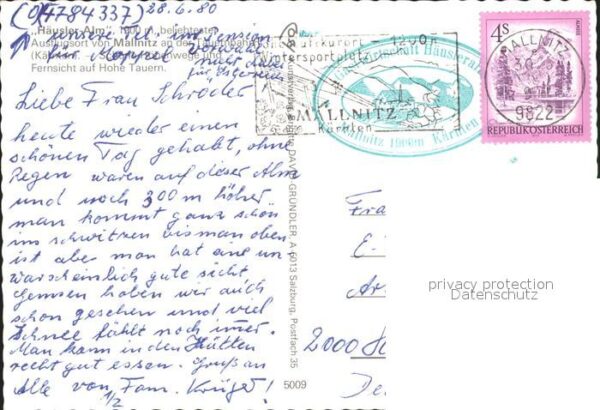 (04784337) 28.6.80
"Häusler-Alm", 1800 m, beliebtester
Ausflugsort von Mallnitz an der Tauernbahn
Fernsicht auf Hohe Tauern.
Liebe Frau Schröder
heute wieder einen
schönen Tag gehabt, ohne
Regen waren auf dieser Alm
und noch 300 m höher.
man kommt ganz schön
ins schwitzen bis man oben
ist aber man hat eine un
warscheinlich gute sicht
Gemsen haben wir auch
schon gesehen und viel
Schnee fählt noch imer.
Man kann in den Hütten
recht gut essen. Gruß an
Alle von Fam. Krüger!
1/2
KUNSTVERLAG DAVID GRÜNDLER, A 5013 Salzburg, Postfach 35
5009
Wintersportplatz
1200m
MALLNITZ
Kärnten
Gastwirtschaft Häusleralm
Mallnitz 1800m Kärnten
4S
ALMSEE
REPUBLIK ÖSTERREICH
MALLNITZ
9822
Fra
2000
privacy protection
Datenschutz